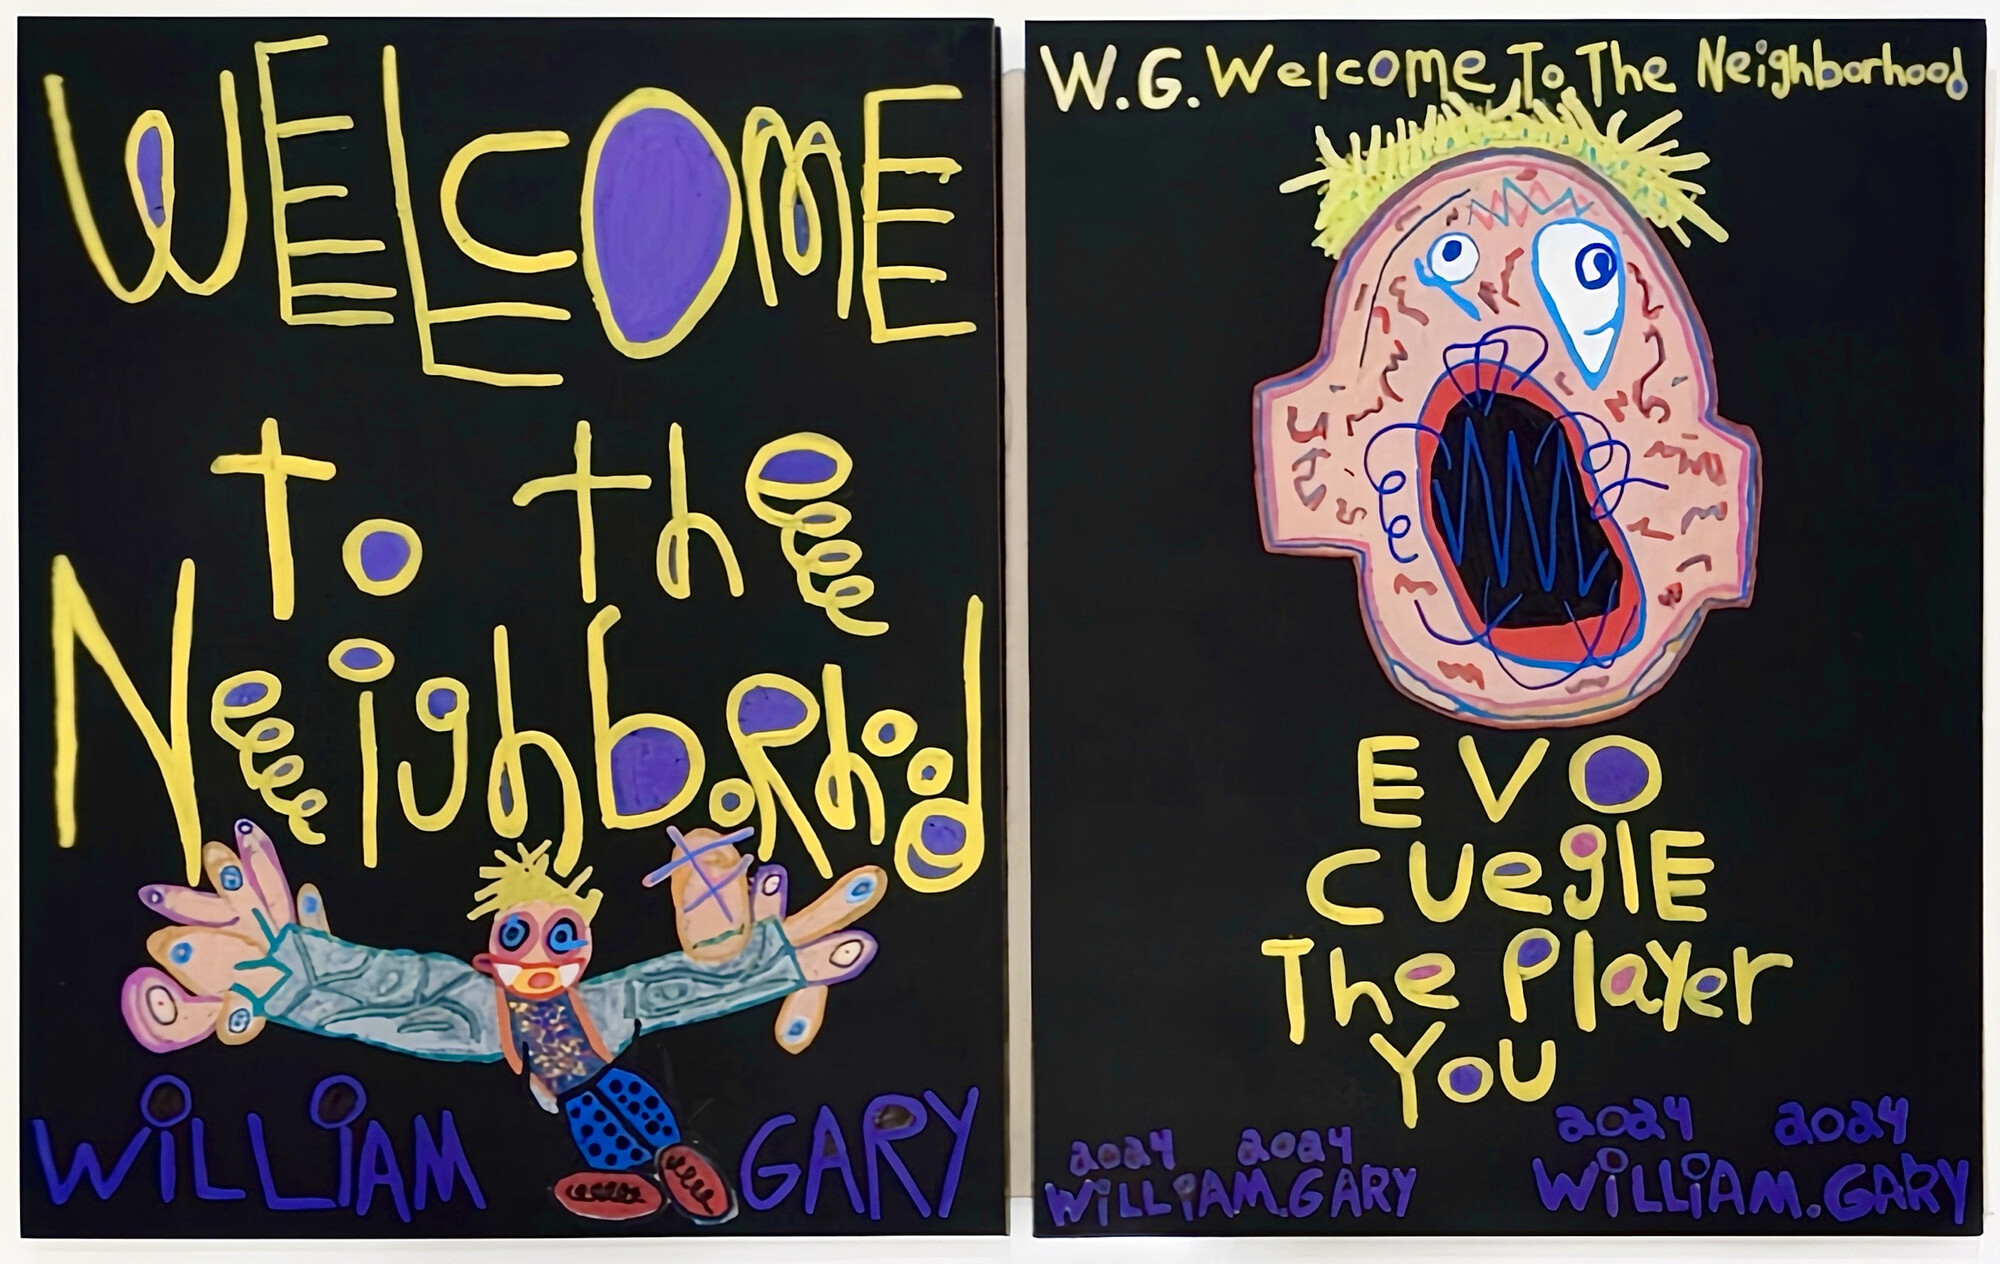 WELCOME
to the
Neighborhood
WiLLiAM GARY
W.G. Welcome To The Neighborhood
EVO
CUeglE
The Player
YOU
2024 2024 2024 2024
WiLLiAM.GARY WiLLiAM.GARY